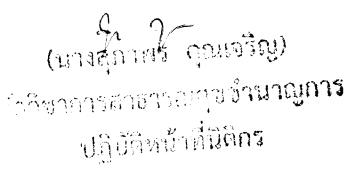 (นางสุภาพร คุณเจริญ)
นักวิชาการสาธารณสุขชำนาญการ
ปฏิบัติหน้าที่นิติกร